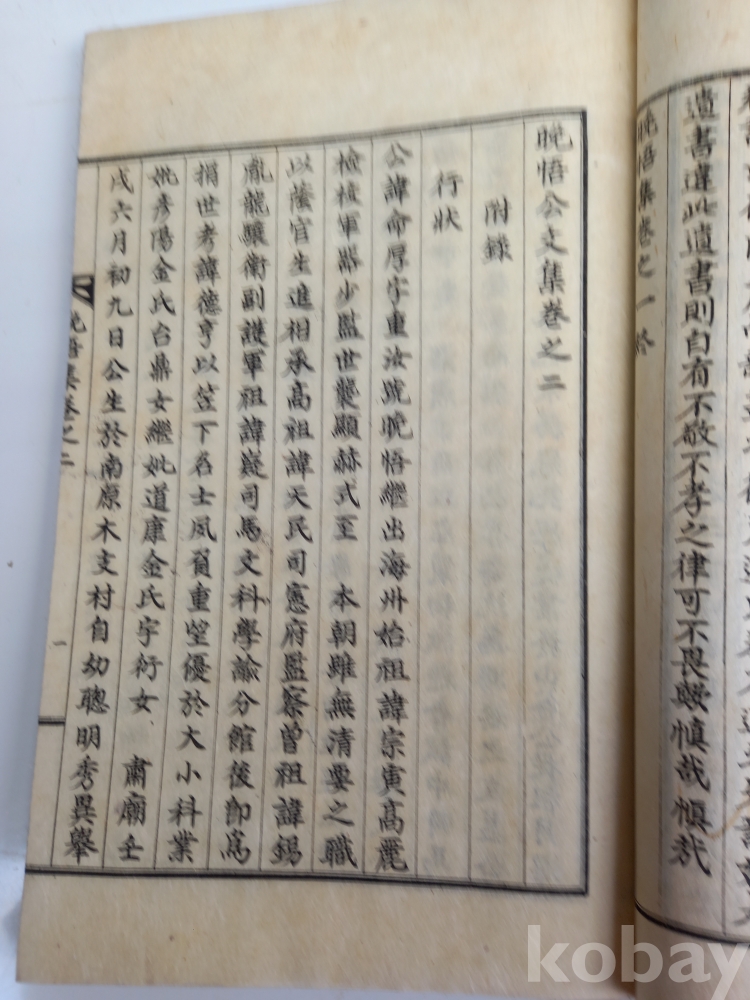 遺書違此遺書則自有不敬不孝之律可不畏歟愼哉愼哉
晩悟集卷之一終
晩悟公文集卷之二
附錄
行狀
公諱命厚字重汝號晩悟繼出海州始祖諱宗寅高麗
檢校軍器少監世襲顯赫式至 本朝雖無淸要之職
以蔭官生進相承高祖諱天民司憲府監察曾祖諱錫
胤龍驤衛副護軍祖諱嶷司馬文科學諭分館後卽爲
捐世考諱德亨以笠下名士夙負重望優於大小科業
妣彦陽金氏台鼎女繼妣道康金氏宇衍女 肅廟壬
戌六月初九日公生於南原木支村自幼聰明秀異擧
晩悟集卷之二
一
kobay